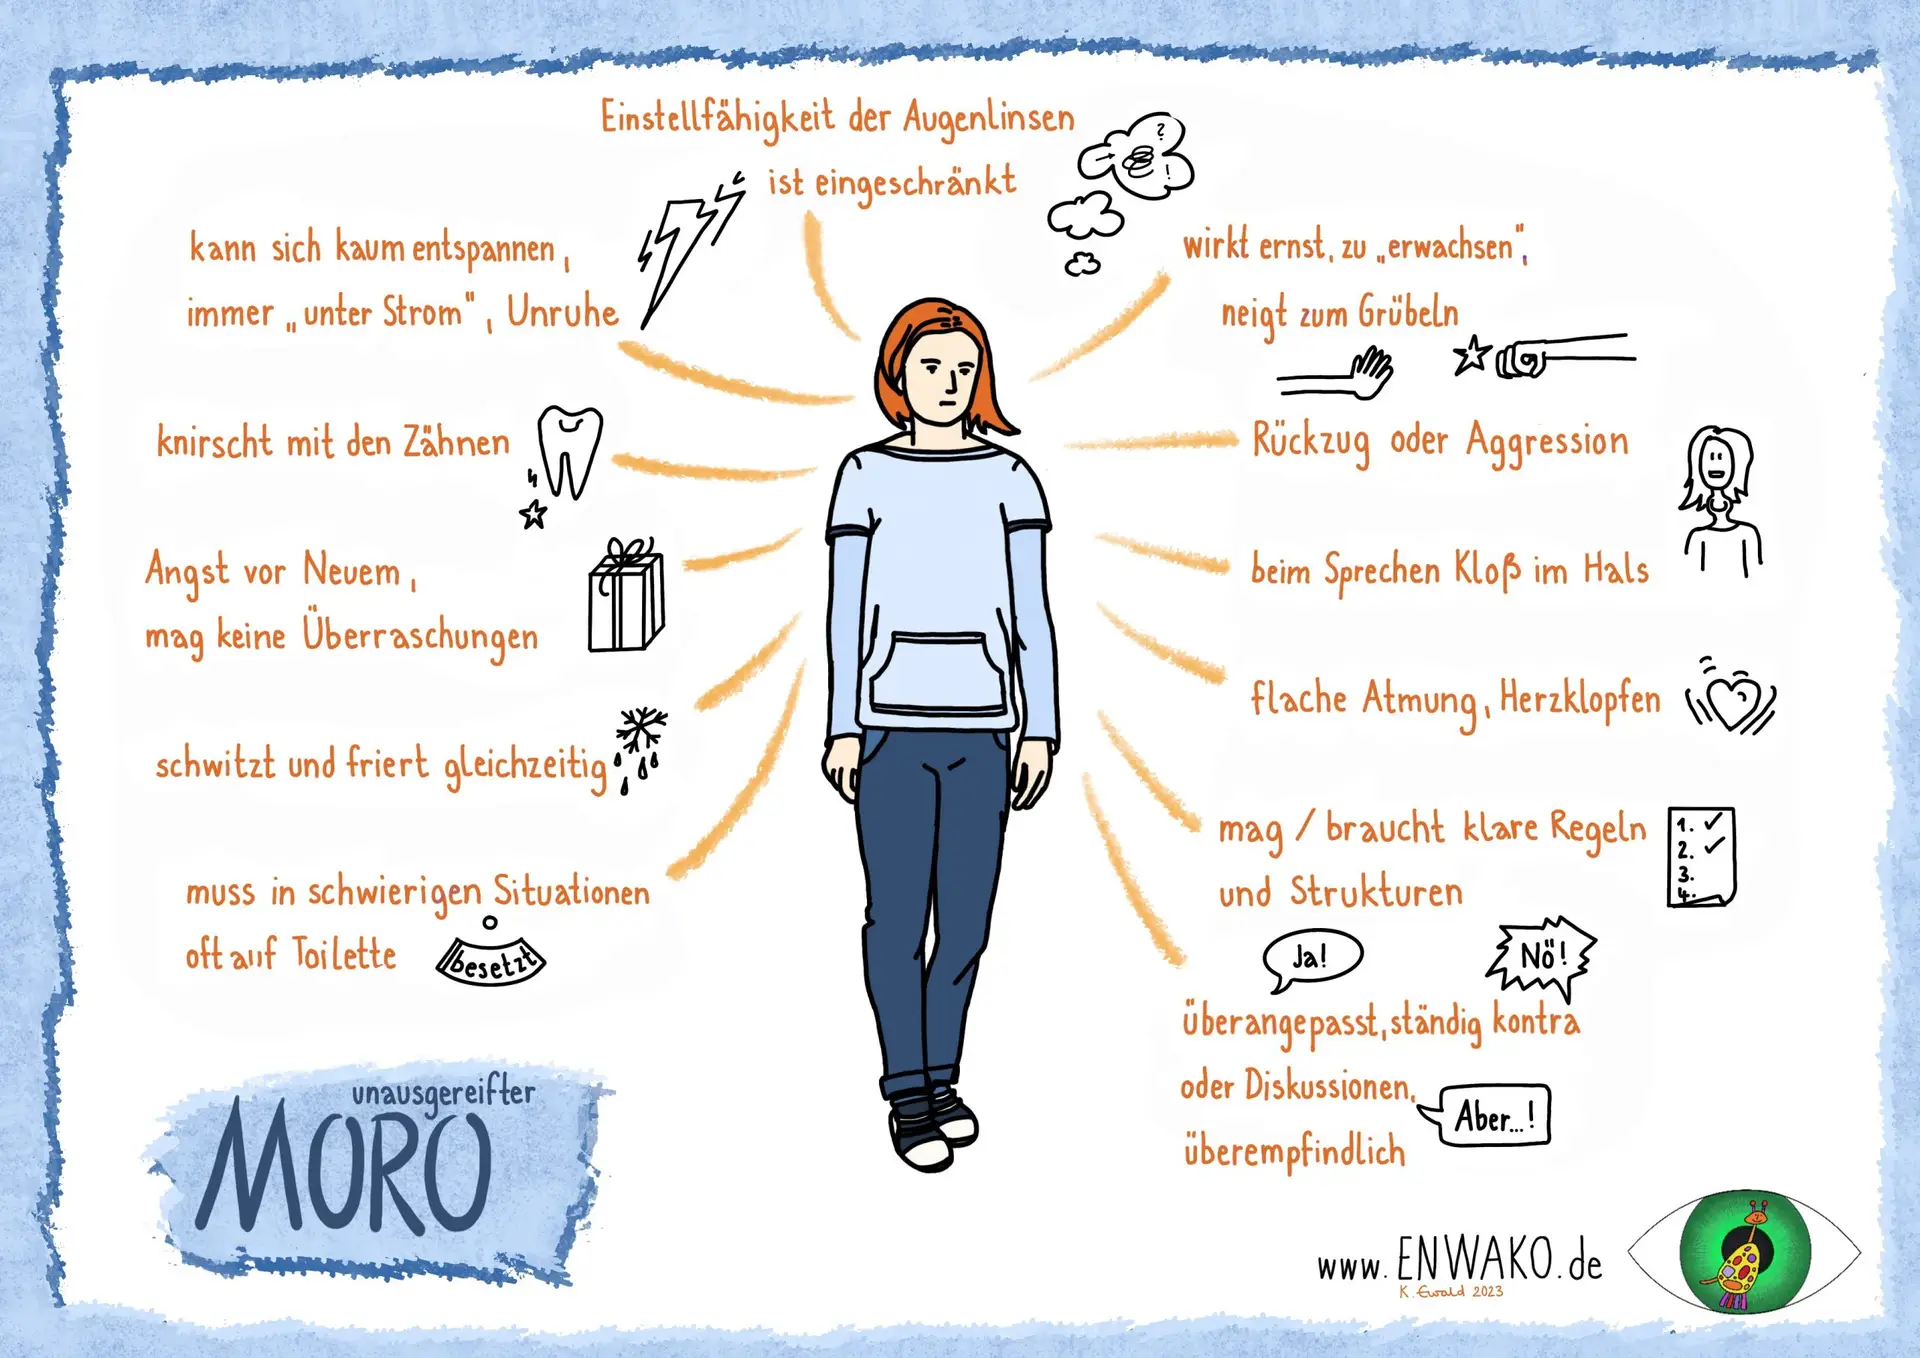 Einstellfähigkeit der Augenlinsen
ist eingeschränkt
? !
kann sich kaum entspannen,
immer „unter Strom", Unruhe
knirscht mit den Zähnen
Angst vor Neuem,
mag keine Überraschungen
schwitzt und friert gleichzeitig
muss in schwierigen Situationen
oft auf Toilette
besetzt
wirkt ernst, zu „erwachsen",
neigt zum Grübeln
Rückzug oder Aggression
beim Sprechen Kloß im Hals
flache Atmung, Herzklopfen
mag / braucht klare Regeln
und Strukturen
1. ✓
2. ✓
3.
4.
Ja!
Nö!
überangepasst, ständig kontra
oder Diskussionen,
Aber...!
überempfindlich
unausgereifter
MORO
www.ENWAKO.de
K. Ewald 2023